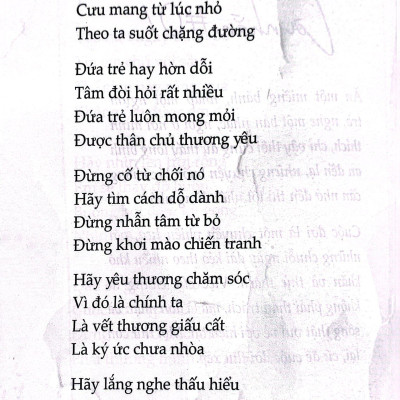 Cưu mang từ lúc nhỏ
Theo ta suốt chặng đường
Đứa trẻ hay hờn dỗi
Tâm đòi hỏi rất nhiều
Đứa trẻ luôn mong mỏi
Được thân chủ thương yêu
Đừng cố từ chối nó
Hãy tìm cách dỗ dành
Đừng nhẫn tâm từ bỏ
Đừng khơi mào chiến tranh
Hãy yêu thương chăm sóc
Vì đó là chính ta
Là vết thương giấu cất
Là ký ức chưa nhòa
Hãy lắng nghe thấu hiểu